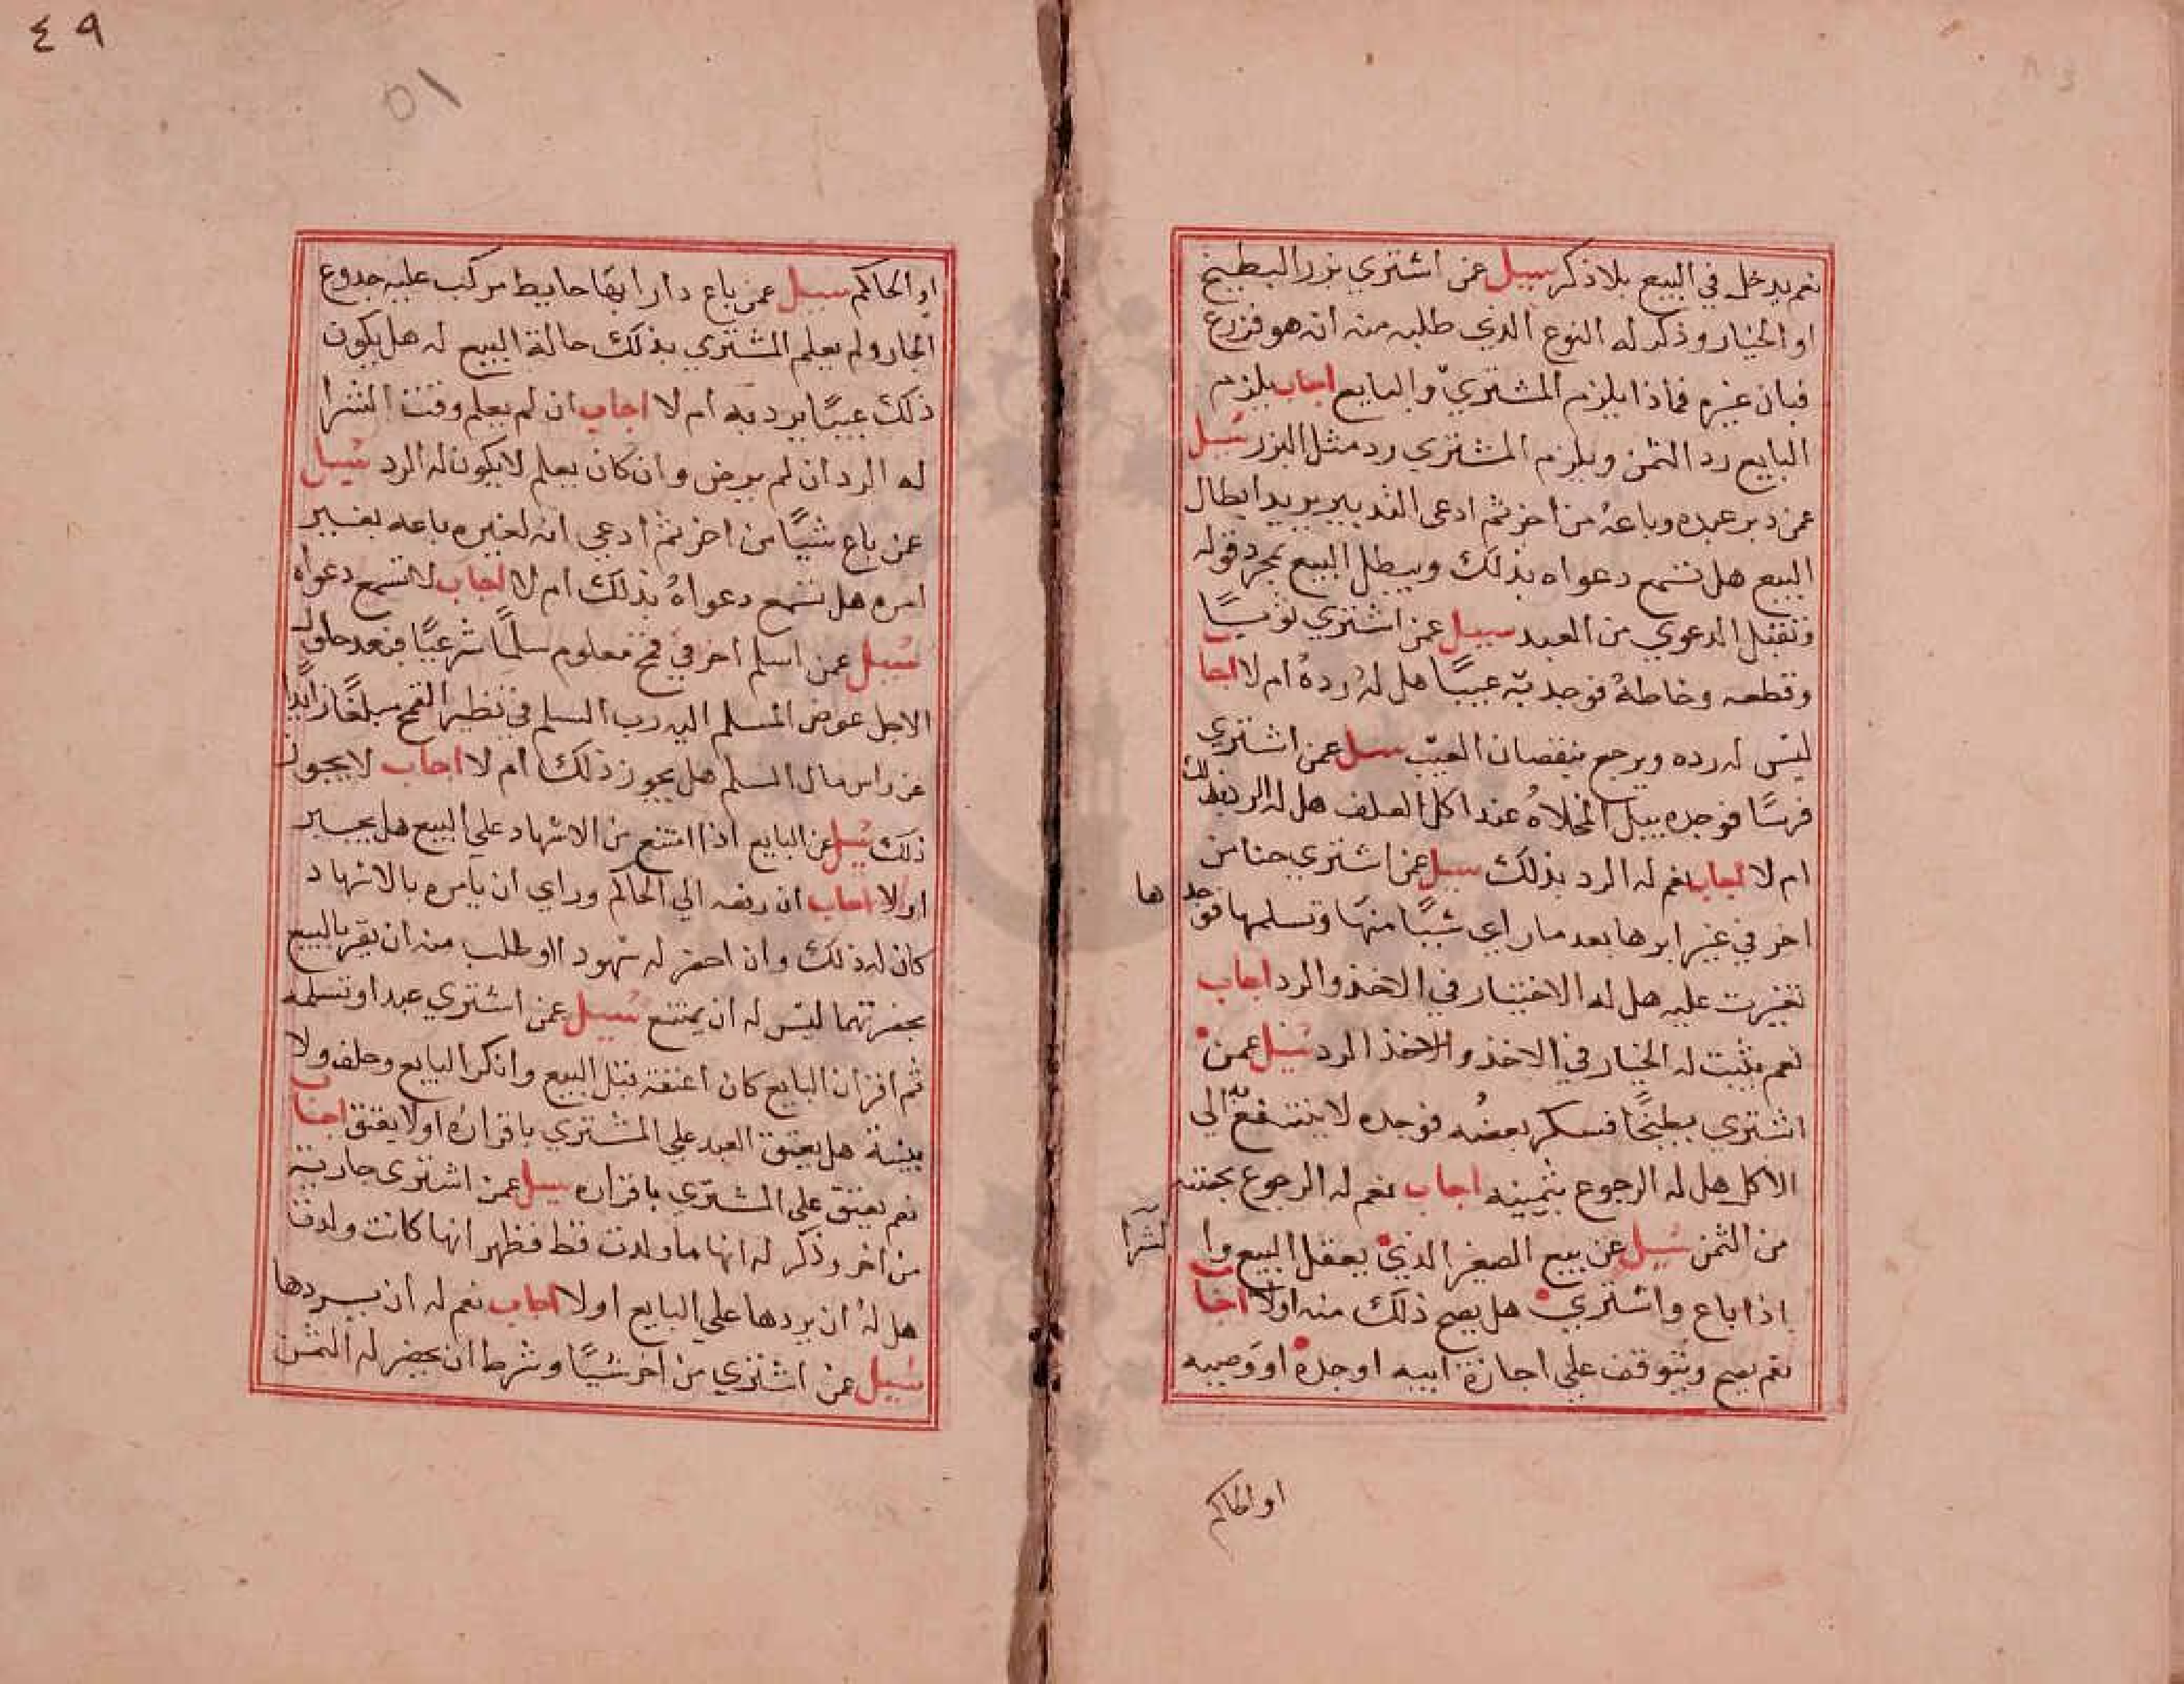 نعم يدخل في البيع بلا ذكر سيل عمن اشتري بزر البطيخ
او الخيار وذكر له النوع الذي طلبه منه انه هو فزرع
فبان غيره فماذا يلزم المشتري والبايع اجاب يلزم
البايع رد الثمن ويلزم المشتري رد مثل البزر سيل
عمن دبر عبده وباعه من اخر ثم ادعى التدبير يريد ابطال
البيع هل تسمع دعواه بذلك ويبطل البيع بمجرد قوله
وتقبل الدعوي من العبد سيل عمن اشتري
وقطعه وخاطه فوجد به عيبا هل له رده ام لا اجاب
ليس له رده ويرجع بنقصان العيب سيل عمن اشتري
فرسا فوجده يبل المخلاه عند اكل العلف هل له الرد بذلك
ام لا اجاب نعم له الرد بذلك سيل عمن اشتري جنا من
اخر في غير ابرها بعد ما راي شيا منها وتسلمها فوجدها
تغيرت عليه هل له الاختيار في الاخذ والرد اجاب
نعم يثبت له الخيار في الاخذ والاخذ الرد سيل عمن
اشتري بطيخا فسكر بعضه فوجده لا ينتفع الي
الاكل هل له الرجوع بثمينه اجاب نعم له الرجوع بحصته
من الثمن سيل عن بيع الصغير الذي يعقل البيع والشرا
اذا باع واشتري هل يصح ذلك منه اولا اجاب
نعم يصح ويتوقف علي اجازة ابيه او جده او وصيه
او الحاكم
٤٩
٥١
او الحاكم سيل عمن باع دارا بها حايط مركب عليه جدوع
الجار ولم يعلم المشتري بذلك حالة البيع له هل يكون
ذلك عيبا يرد به ام لا اجاب ان لم يعلم وقت الشرا
له الرد ان لم يرض وان كان يعلم لا يكون له الرد سيل
عمن باع شيا من اخر ثم ادعي انه لغيره باعه بغير
امره هل تسمع دعواه بذلك ام لا اجاب لا تسمع دعواه
سيل عمن اسلم اخر في قمح معلوم سلما شرعيا فبعد حلول
الاجل عوض المسلم اليه رب السلم في نظير القمح مبلغا زايدا
عن راس مال السلم هل يجوز ذلك ام لا اجاب لا يجوز
ذلك سيل عن البايع اذا امتنع من الاشهاد علي البيع هل يجبر
اولا اجاب ان رفعه الي الحاكم وراي ان يامره بالاشهاد
كان له ذلك وان احضر له شهودا وطلب منه ان يقر بالبيع
بحضرتهما ليس له ان يمتنع سيل عمن اشتري عبدا وتسلمه
ثم اقر ان البايع كان اعتقه قبل البيع وانكر البايع وحلف ولا
بينة هل يعتق العبد علي المشتري باقراره اولا يعتق اجاب
نعم يعتق علي المشتري باقراره سيل عمن اشترى جارية
من اخر وذكر له انها ما ولدت قط فظهر انها كانت ولدت
هل له ان يردها علي البايع اولا اجاب نعم له ان يردها
سيل عمن اشتري من اخر شيا وشرط ان يحضر له الثمن